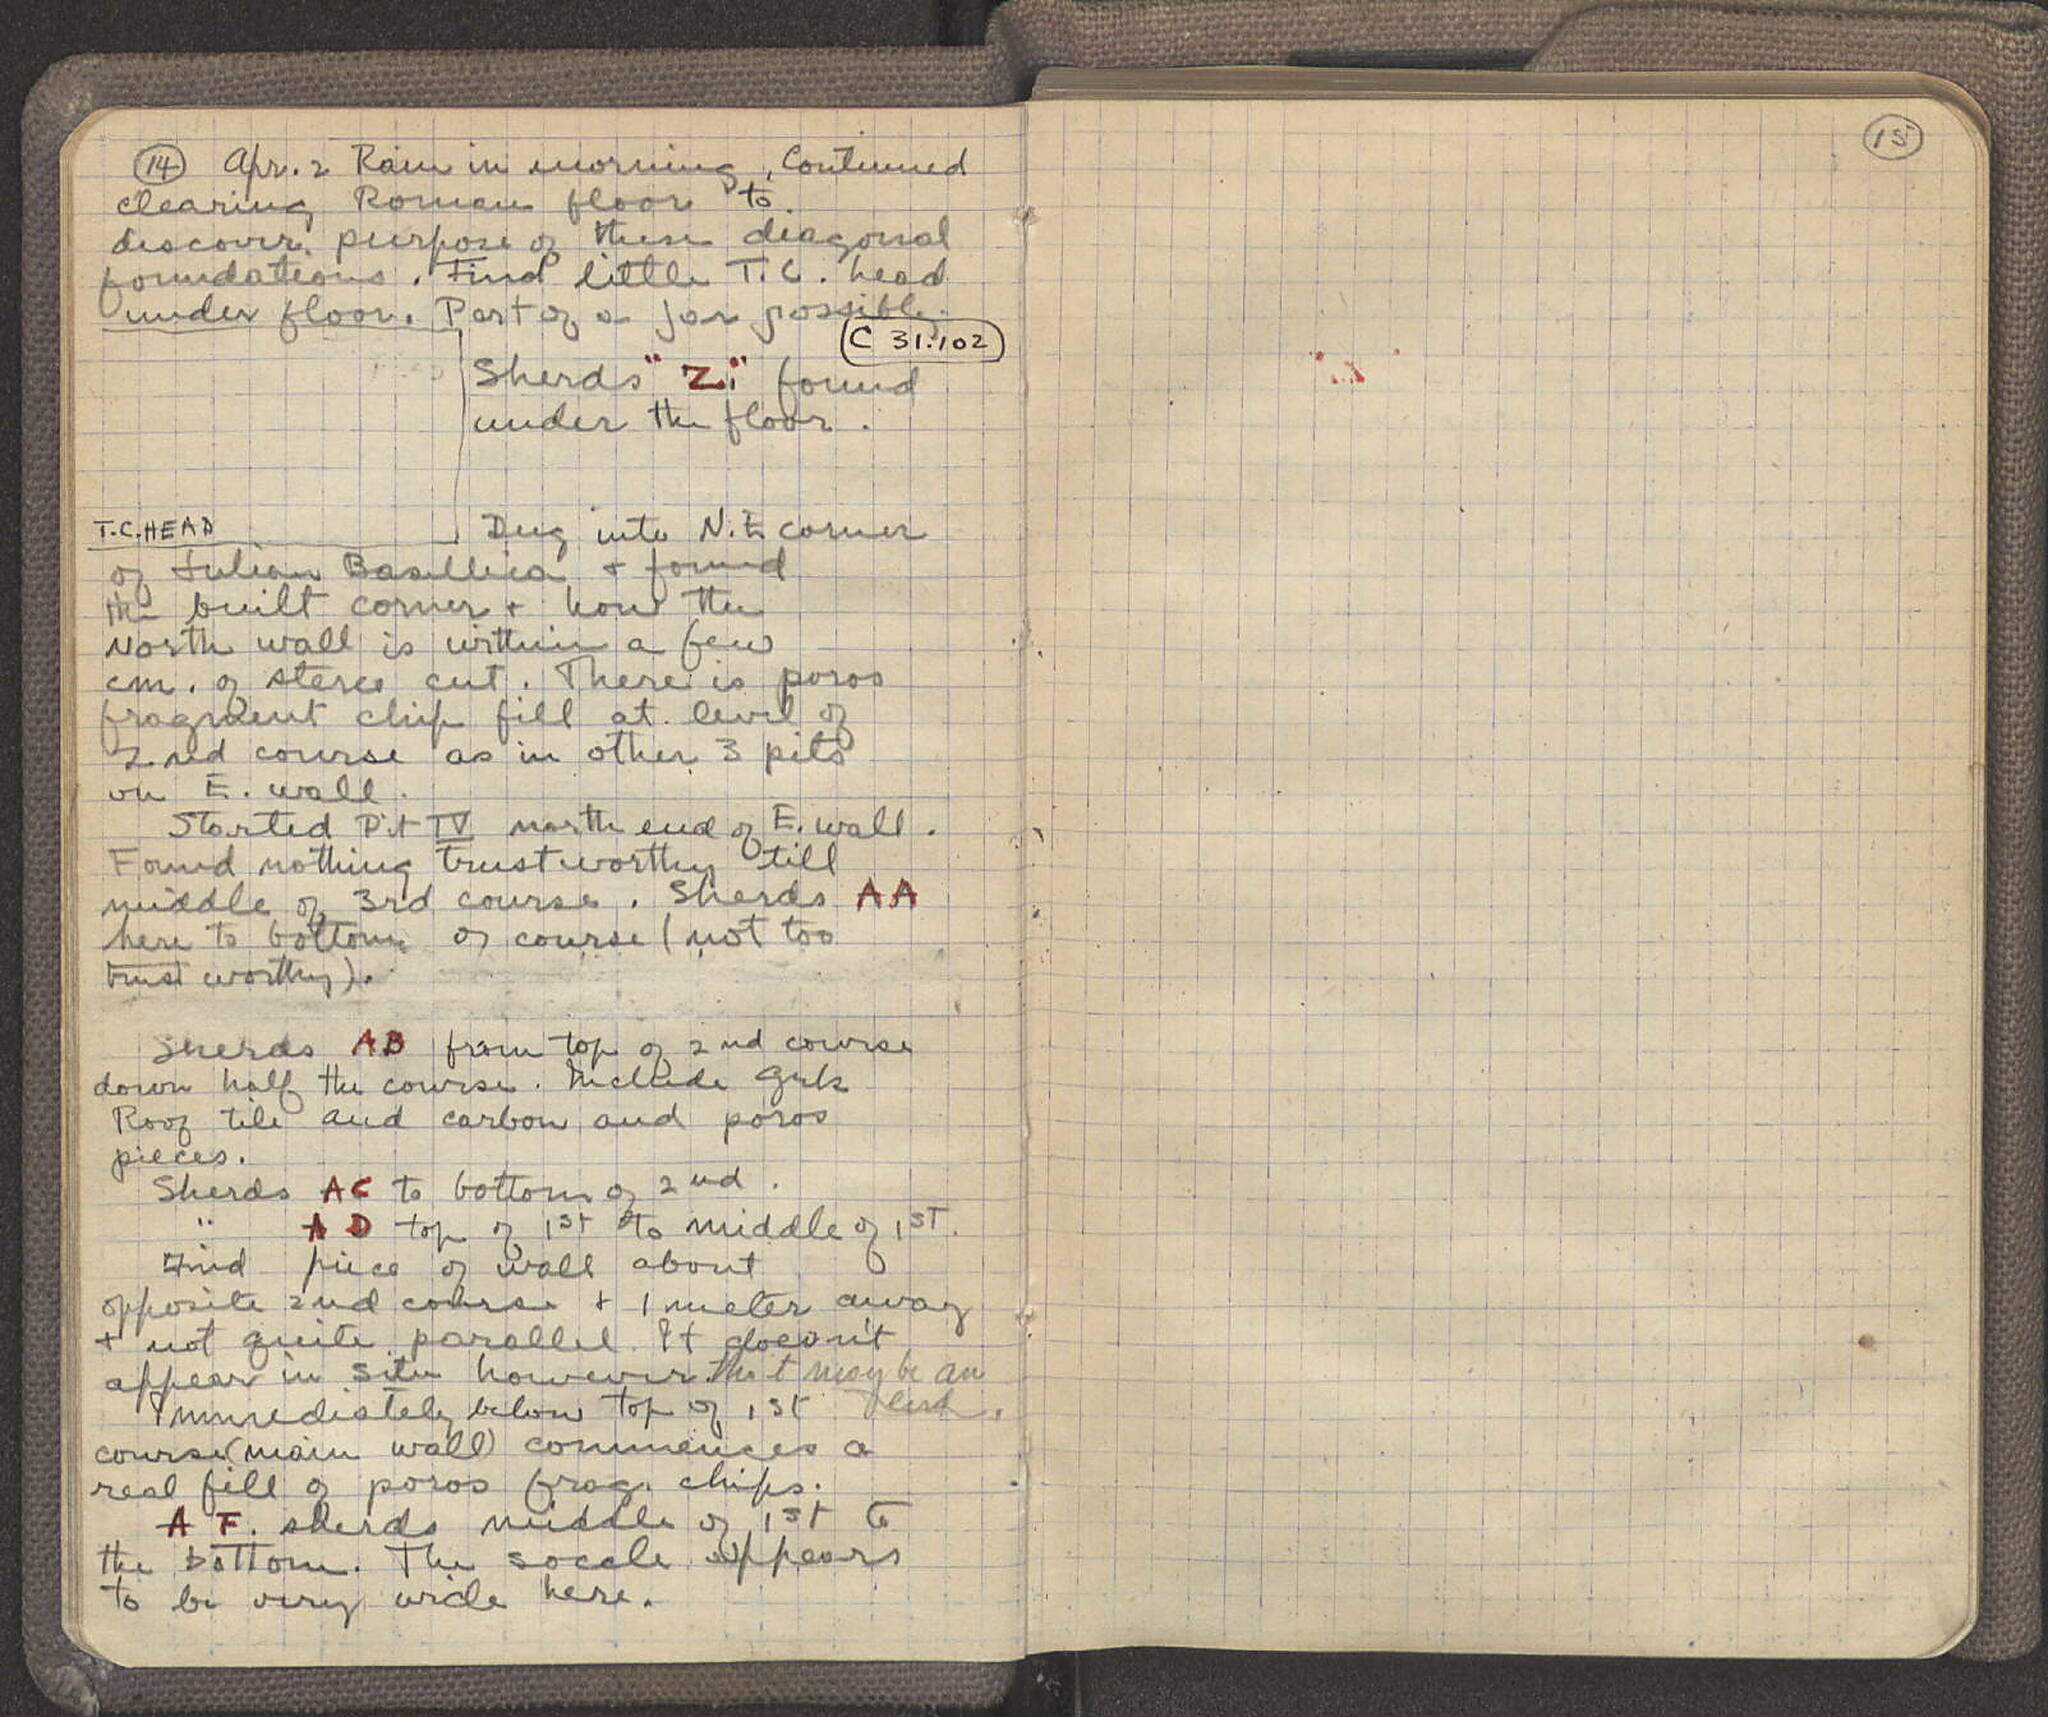 14 Apr. 2 Rain in morning, Continued
clearing Roman floor to
discover purpose of these diagonal
foundations. Find little T.C. head
under floor. Part of a jar possibly.
C 31.102
Sherds "Z" found
under the floor.
T.C. HEAD
Dug into N.E. corner
of Julian Basillica + found
the built corner + how the
North wall is within a few
cm. of stereo cut. There is poros
fragment chip fill at level of
2nd course as in other 3 pits
on E. wall.
Started Pit IV north end of E. wall.
Found nothing trustworthy till
middle of 3rd course. Sherds AA
here to bottom of course (not too
trustworthy).
Sherds AB from top of 2nd course
down half the course. Include Grk
Roof tile and carbon and poros
pieces.
Sherds AC to bottom of 2nd.
" AD top of 1st to middle of 1st.
Find piece of wall about
opposite 2nd course + 1 meter away
+ not quite parallel. It doesn't
appear in situ however. that may be an
Immediately below top of 1st
course (main wall) commences a
real fill of poros frag. chips.
AF. sherds middle of 1st to
the bottom. The socale appears
to be very wide here.
15